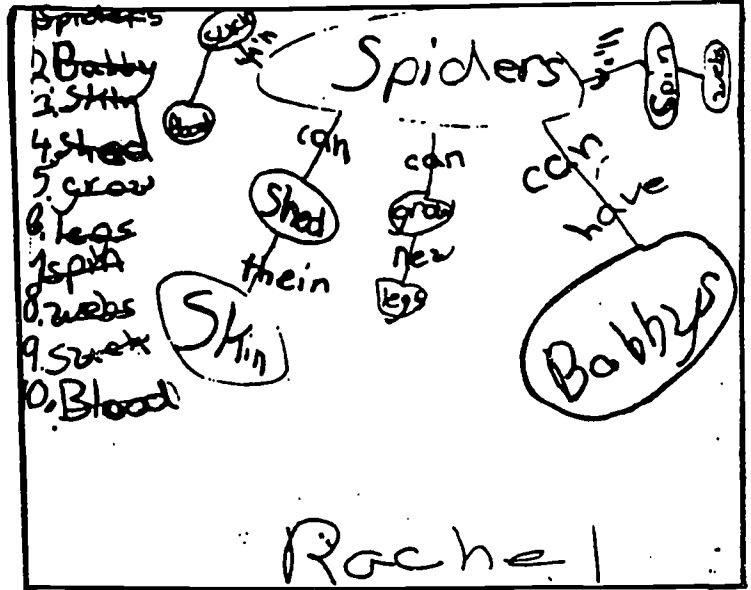 1. Spiders
2. Babby
3. Skin
4. Shed
5. grow
6. legs
7. spin
8. webs
9. suck
10. Blood
suck
Blood
Spiders
Spin
webs
can
Shed
thein
Skin
can
grow
new
legs
can
have
Babbys
Rachel